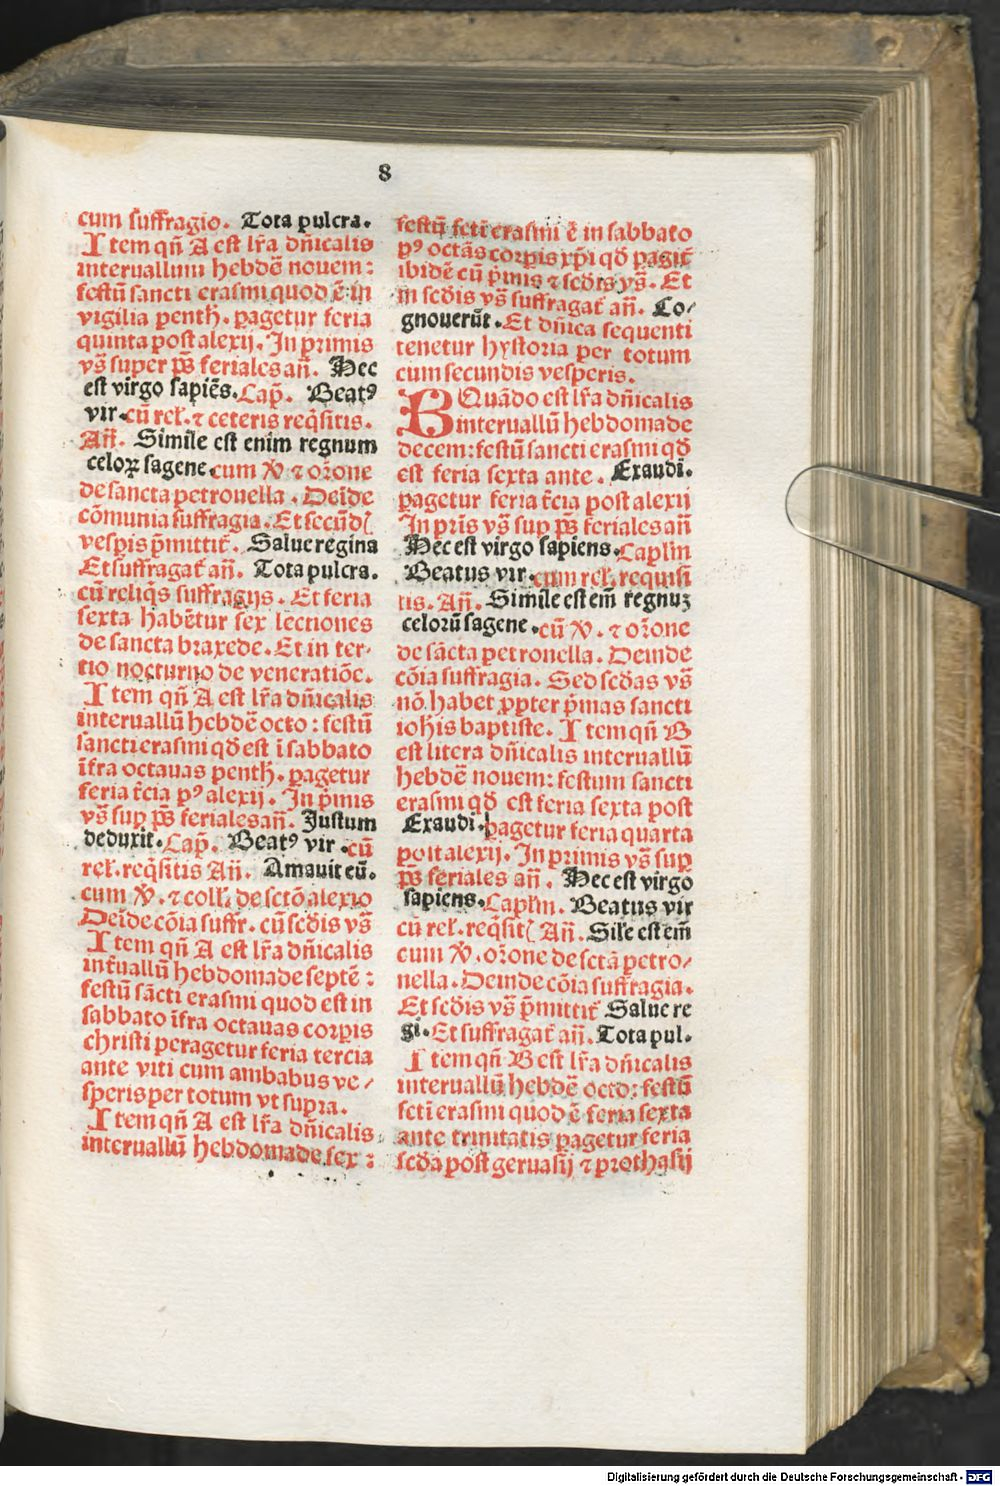 8
cum suffragio. Tota pulcra.
Item qn̄ A est lr̄a dn̄icalis
interuallum hebdē nouem:
festū sancti erasmi quod ē in
vigilia penth. ꝑagetur feria
quinta post alexij. In primis
vs̄ super ps̄ feriales an̄. Hec
est virgo sapiēs. Cap̄. Beatꝰ
vir. cū rel. ⁊ ceteris req̄sitis.
An̄. Simile est enim regnum
celoꝝ sagene. cum V̄ ⁊ or̄one
de sancta petronella. Deīde
cōmunia suffragia. Et secūd
vesꝑis p̄mittit̄. Salue regina
Et suffragat̄ an̄. Tota pulcra.
cū reliq̄s suffragijs. Et feria
sexta habētur sex lectiones
de sancta braxede. Et in ter-
tio nocturno de veneratiōe.
Item qn̄ A est lr̄a dn̄icalis
interuallū hebdē octo: festū
sancti erasmi qd̄ est ī sabbato
īfra octauas penth. ꝑagetur
feria t̄cia pꝰ alexij. In p̄mis
vs̄ suꝑ ps̄ feriales an̄. Justum
deduxit. Cap̄. Beatꝰ vir. cū
rel. req̄sitis An̄. Amauit eū.
cum V̄. ⁊ coll. de sctō alexio
Deīde cōia suffr. cū scd̄is vs̄
Item qn̄ A est lr̄a dn̄icalis
int̄uallū hebdomade septē:
festū sācti erasmi quod est in
sabbato īfra octauas corꝑis
christi peragetur feria tercia
ante viti cum ambabus ve/
speris per totum vt supra.
Item qn̄ A est lr̄a dn̄icalis
interuallū hebdomade sex:
festū scti erasmi ē in sabbato
pꝰ octās corꝑis xp̄i qd̄ ꝑagit̄
ibidē cū p̄mis ⁊ scd̄is vs̄. Et
in scd̄is vs̄ suffragat̄ an̄. Co/
gnouerūt. Et dn̄ica sequenti
tenetur hystoria per totum
cum secundis vesperis.
B Quādo est lr̄a dn̄icalis
interuallū hebdomade
decem: festū sancti erasmi qd̄
est feria sexta ante. Exaudi.
ꝑagetur feria t̄cia post alexij
In pr̄is vs̄ suꝑ ps̄ feriales an̄
Hec est virgo sapiens. Caplm̄
Beatus vir. cum rel. requisi
tis. An̄. Simile est em̄ regnuꝫ
celorū sagene. cū V̄. ⁊ or̄one
de sācta petronella. Deinde
cōia suffragia. Sed scd̄as vs̄
nō habet ꝓpter p̄mas sancti
iohīs baptiste. Item qn̄ B
est litera dn̄icalis interuallū
hebdē nouem: festum sancti
erasmi qd̄ est feria sexta post
Exaudi. ꝑagetur feria quarta
post alexij. In primis vs̄ suꝑ
ps̄ feriales an̄. Hec est virgo
sapiens. Caplm̄. Beatus vir
cū rel. req̄sit An̄. Sile est em̄
cum V̄. or̄one de sctā petro/
nella. Deinde cōia suffragia.
Et scd̄is vs̄ p̄mittit̄ Salue re
gi. Et suffragat̄ an̄. Tota pul.
Item qn̄ B est lr̄a dn̄icalis
interuallū hebdē octo: festū
scti erasmi quod ē feria sexta
ante trinitatis ꝑagetur feria
scd̄a post geruasij ⁊ prothasij
Digitalisierung gefördert durch die Deutsche Forschungsgemeinschaft - DFG